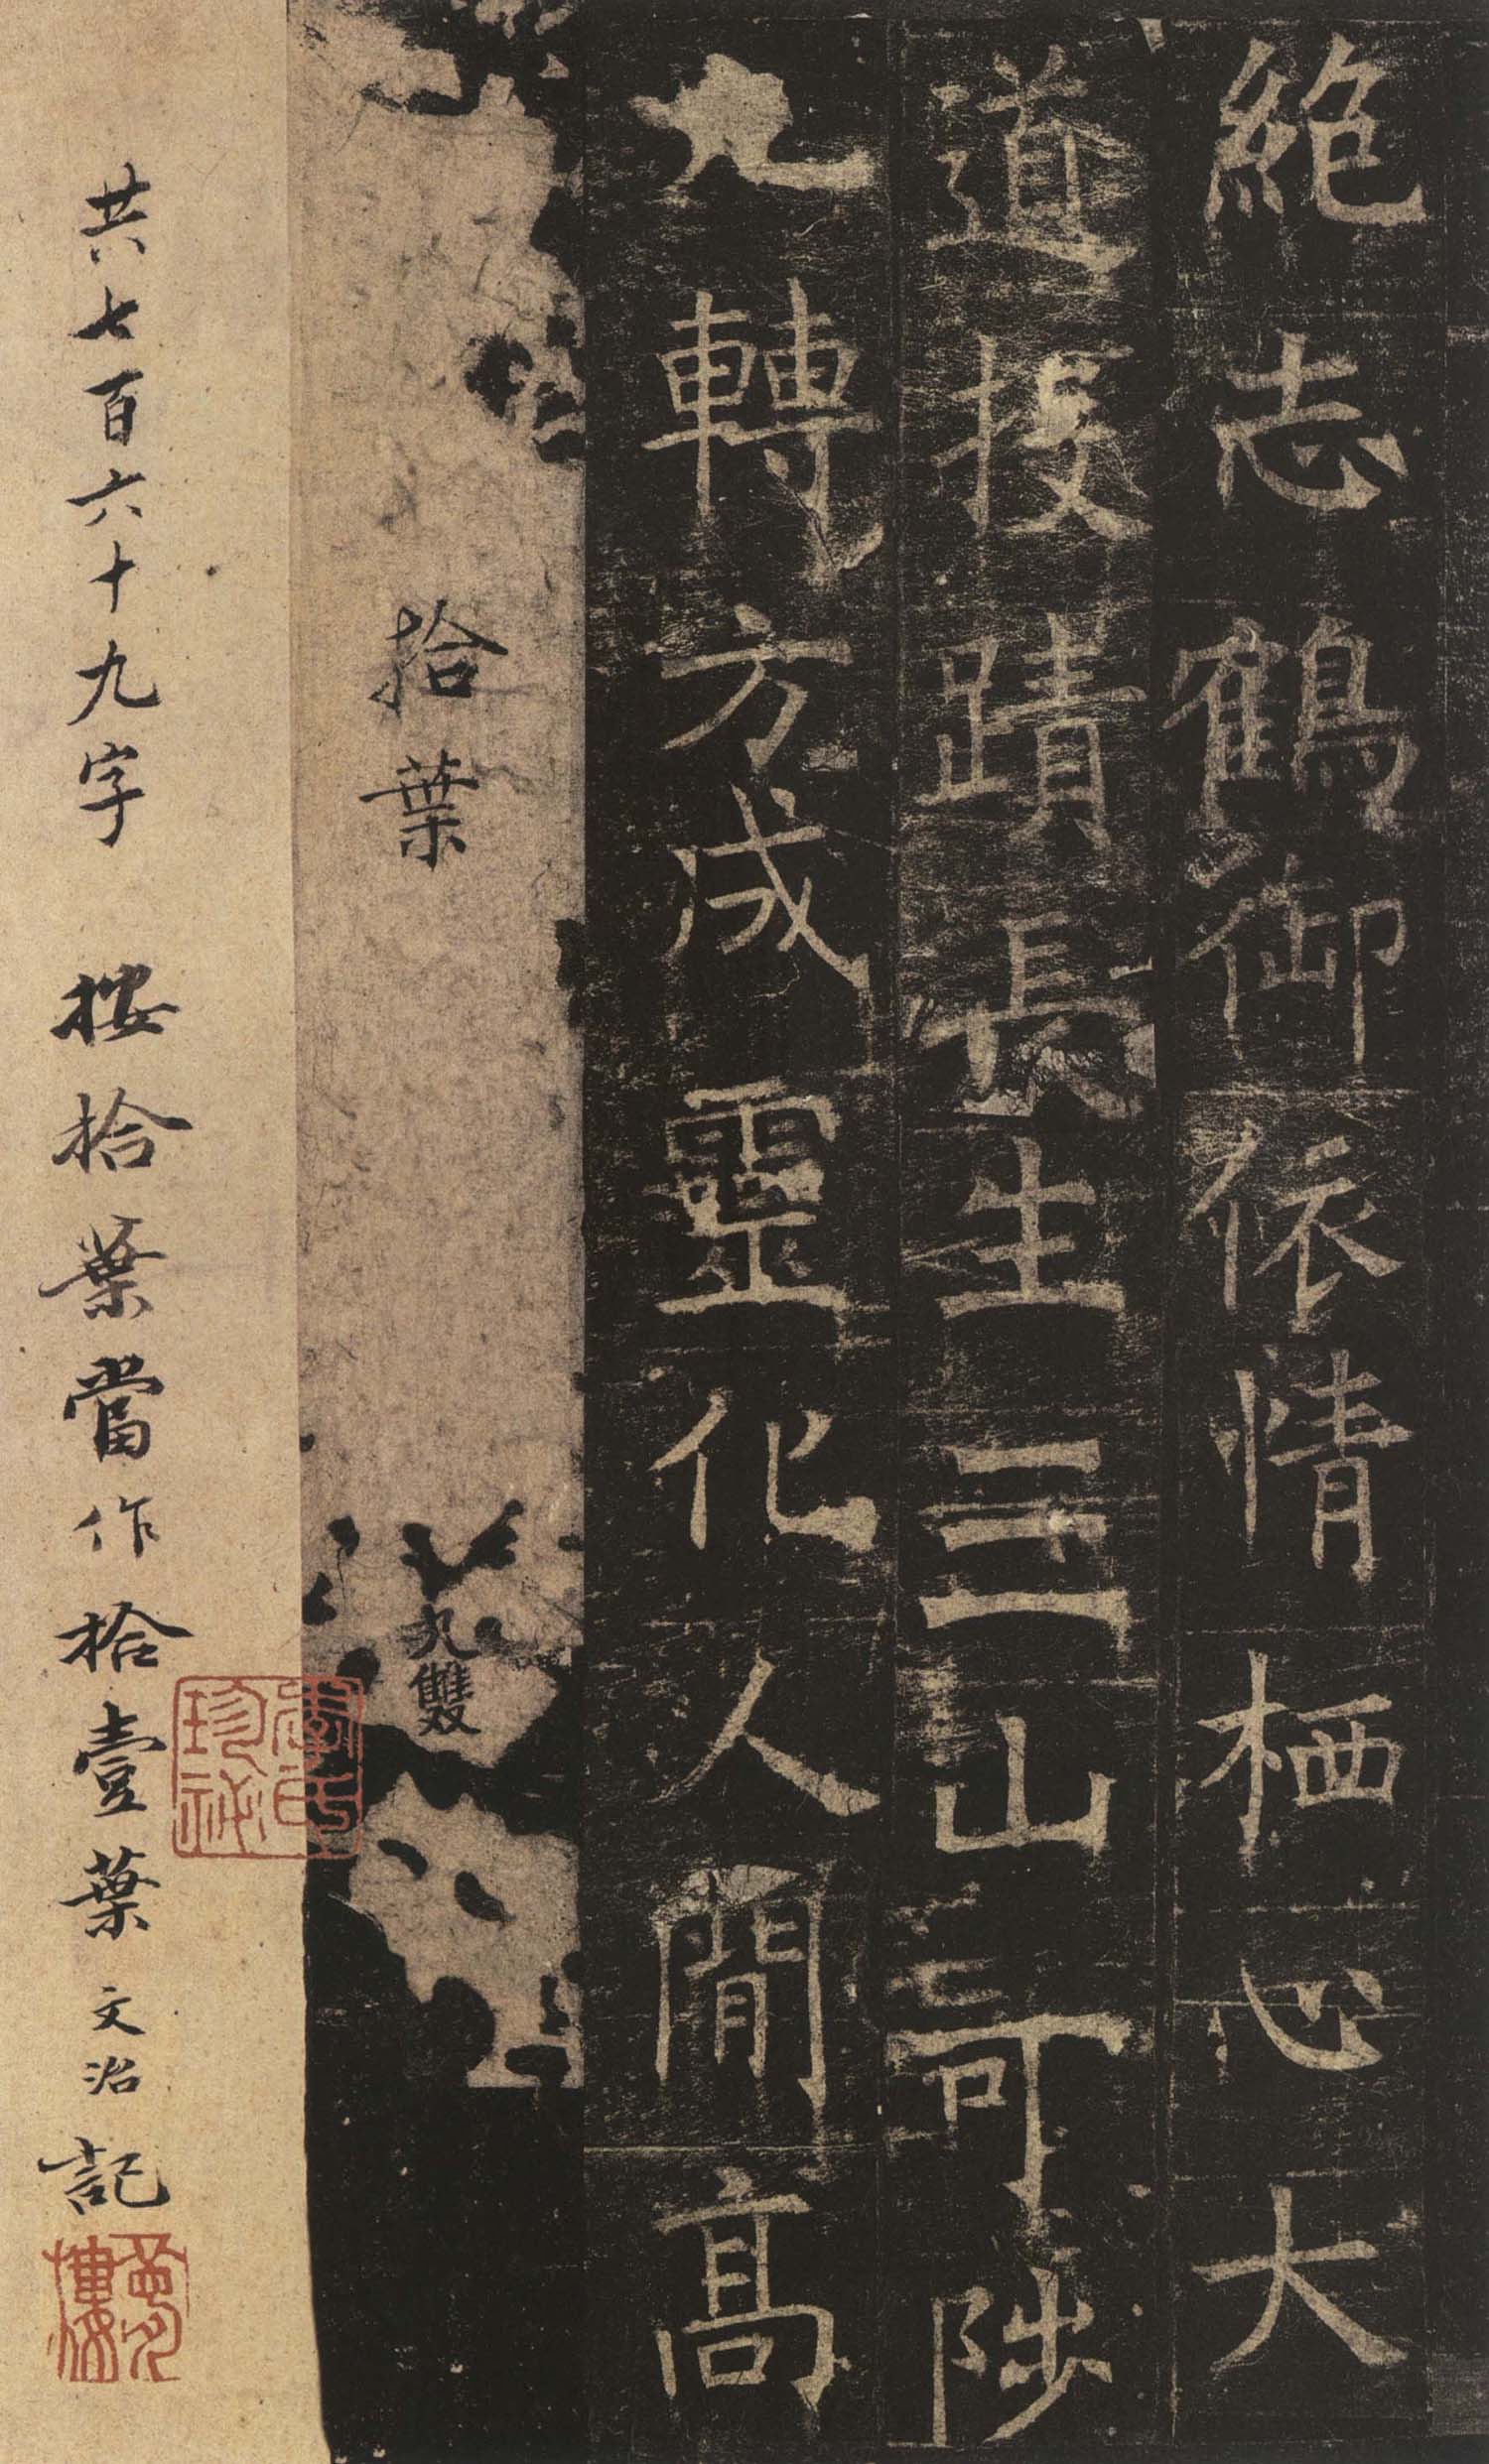 絶志鶴御依情栖心大
道投蹟長生三山可陟
九轉方成靈化人閒高
拾葉
九雙
共七百六十九字 按拾葉當作拾壹葉 文治記
李氏珍祕
夢樓